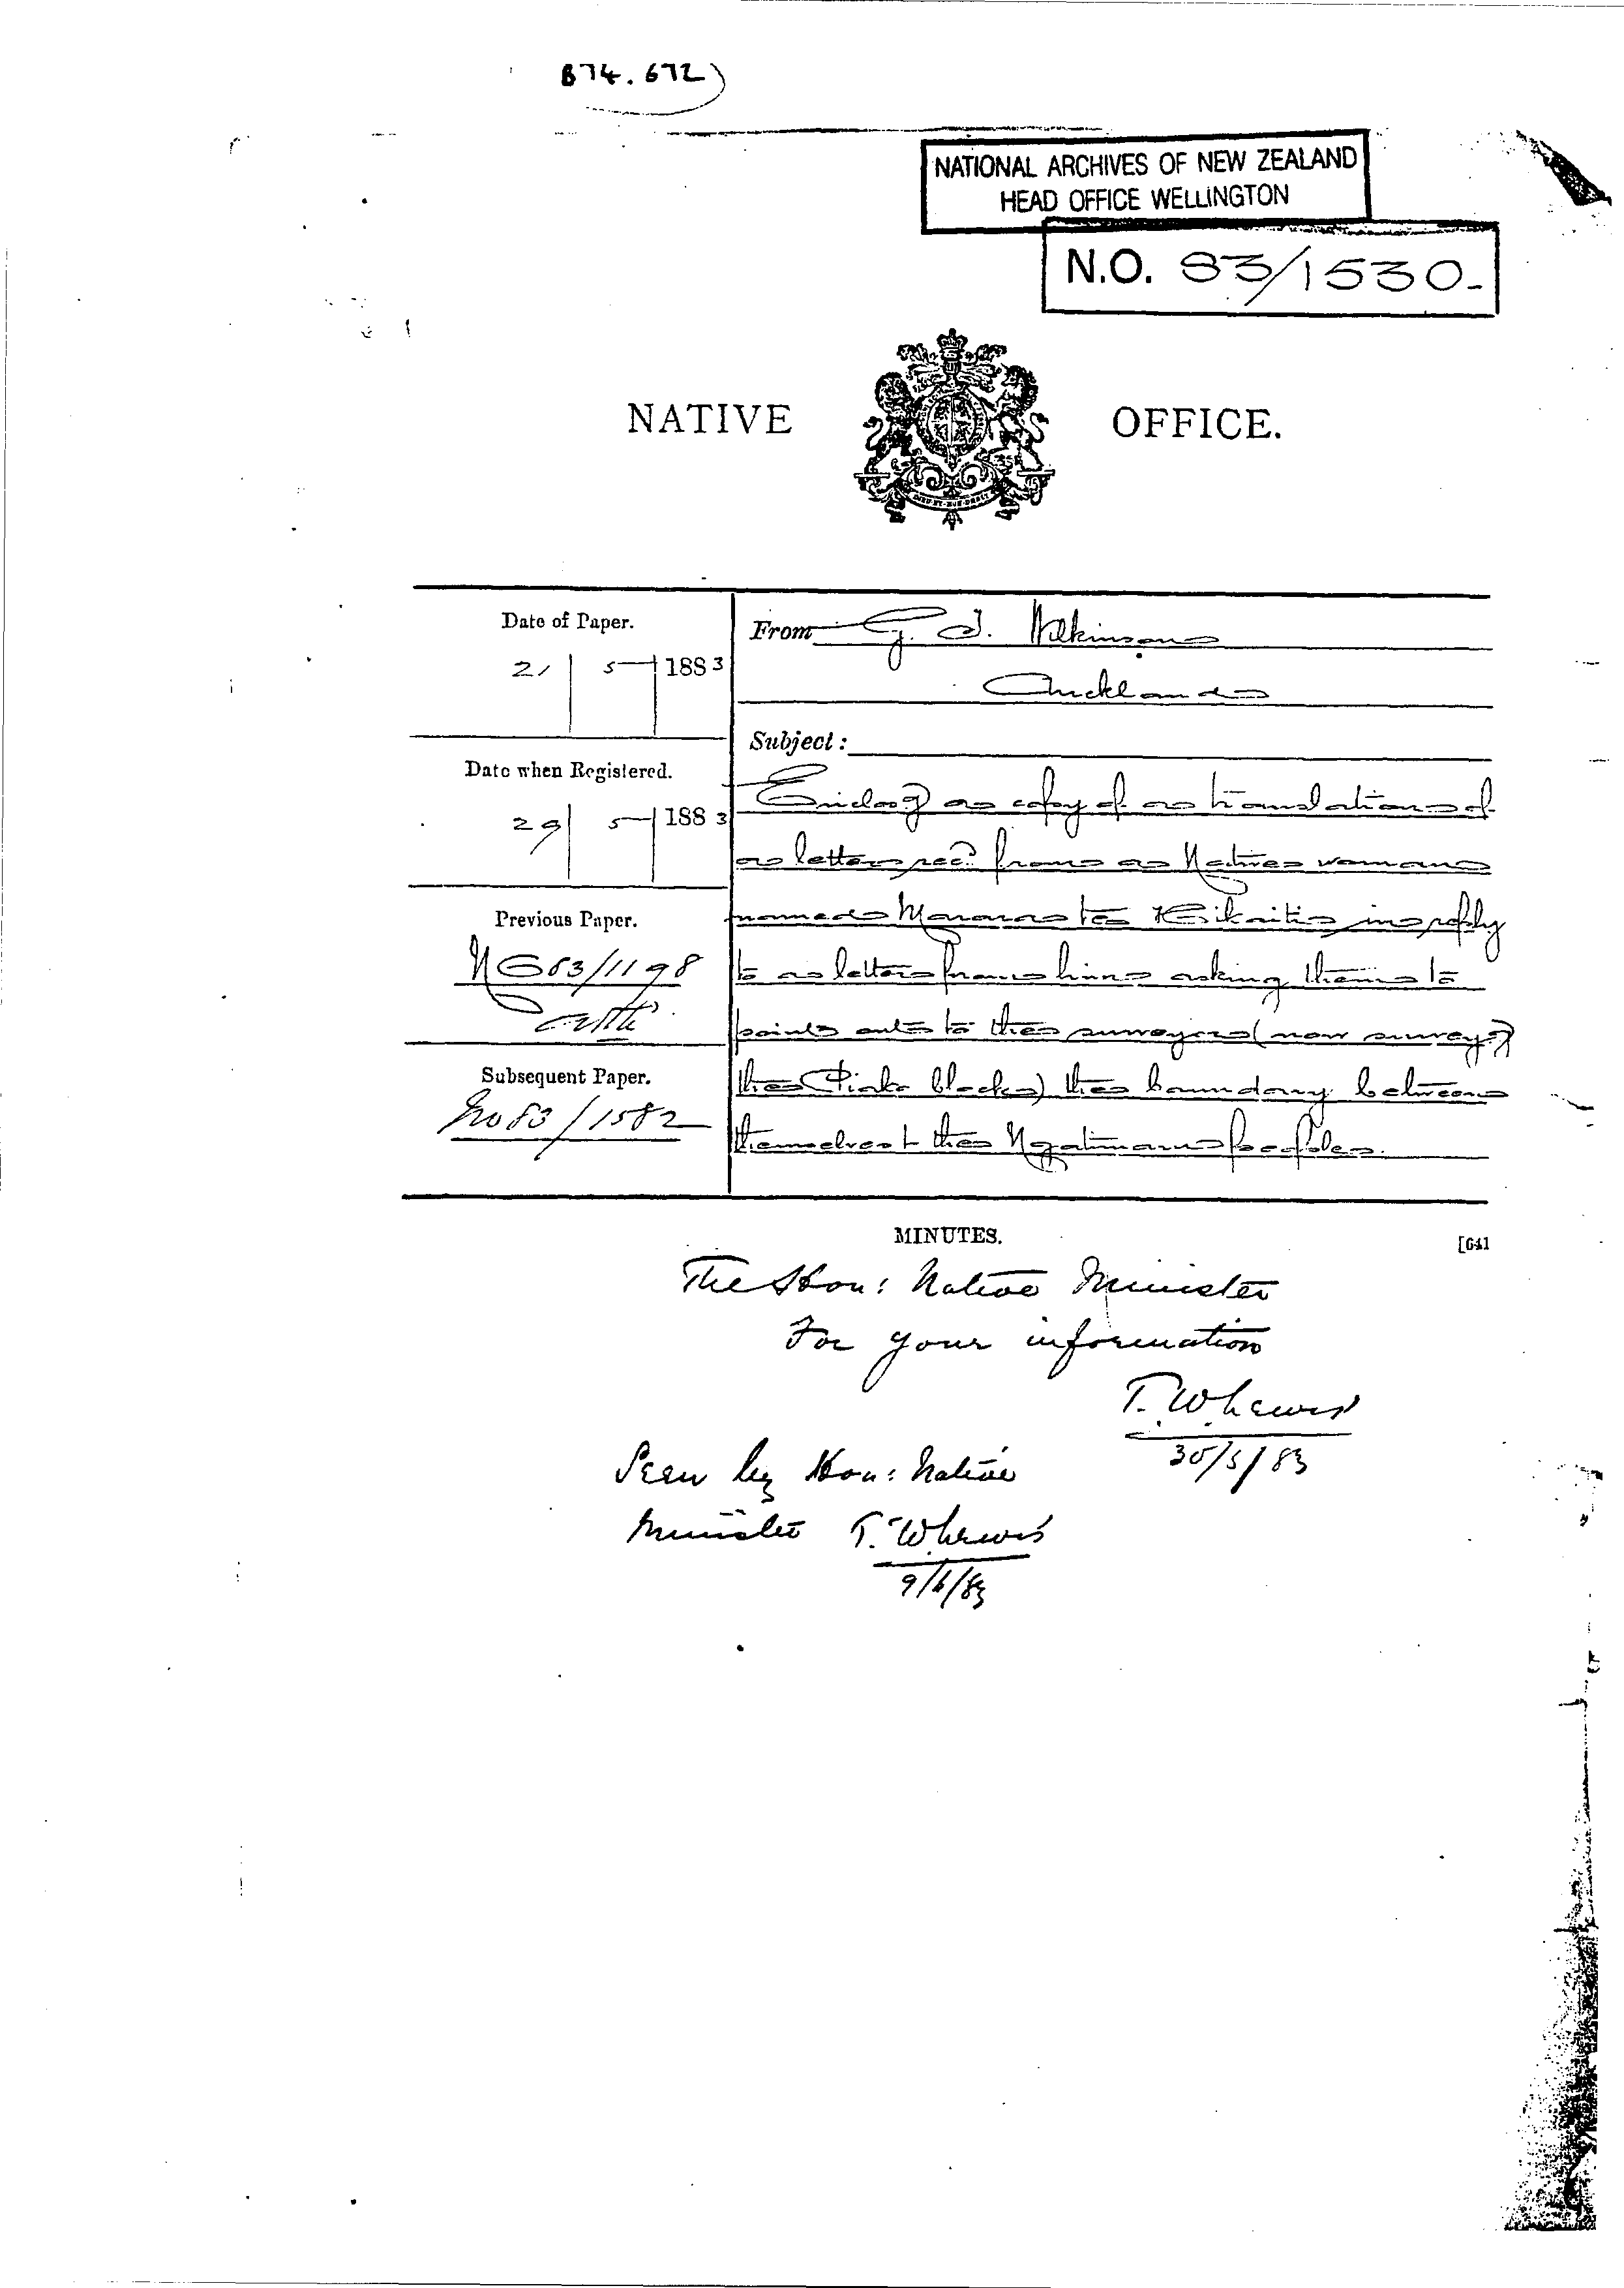 B74.672)
NATIONAL ARCHIVES OF NEW ZEALAND
HEAD OFFICE WELLINGTON
N.O. 83/1530-
NATIVE OFFICE.
Date of Paper.
21 5 1883
From G. T. Wilkinson
Auckland
Subject:
Date when Registered.
29 5 1883
Enclosg a copy of a translation of
a letter recd from a Native woman
Previous Paper.
named te in reply
NO83/1198
to a letter from him asking them to
point out to the surveyor (now surveyg
Subsequent Paper.
the block) the boundary between
No 83/1582
themselves & the Ngatimaru people.
MINUTES.
[641
The Hon: Native Minister
For your information
T. W Lewis
30/5/83
Seen by Hon: Native
Minister T. W Lewis
9/6/83